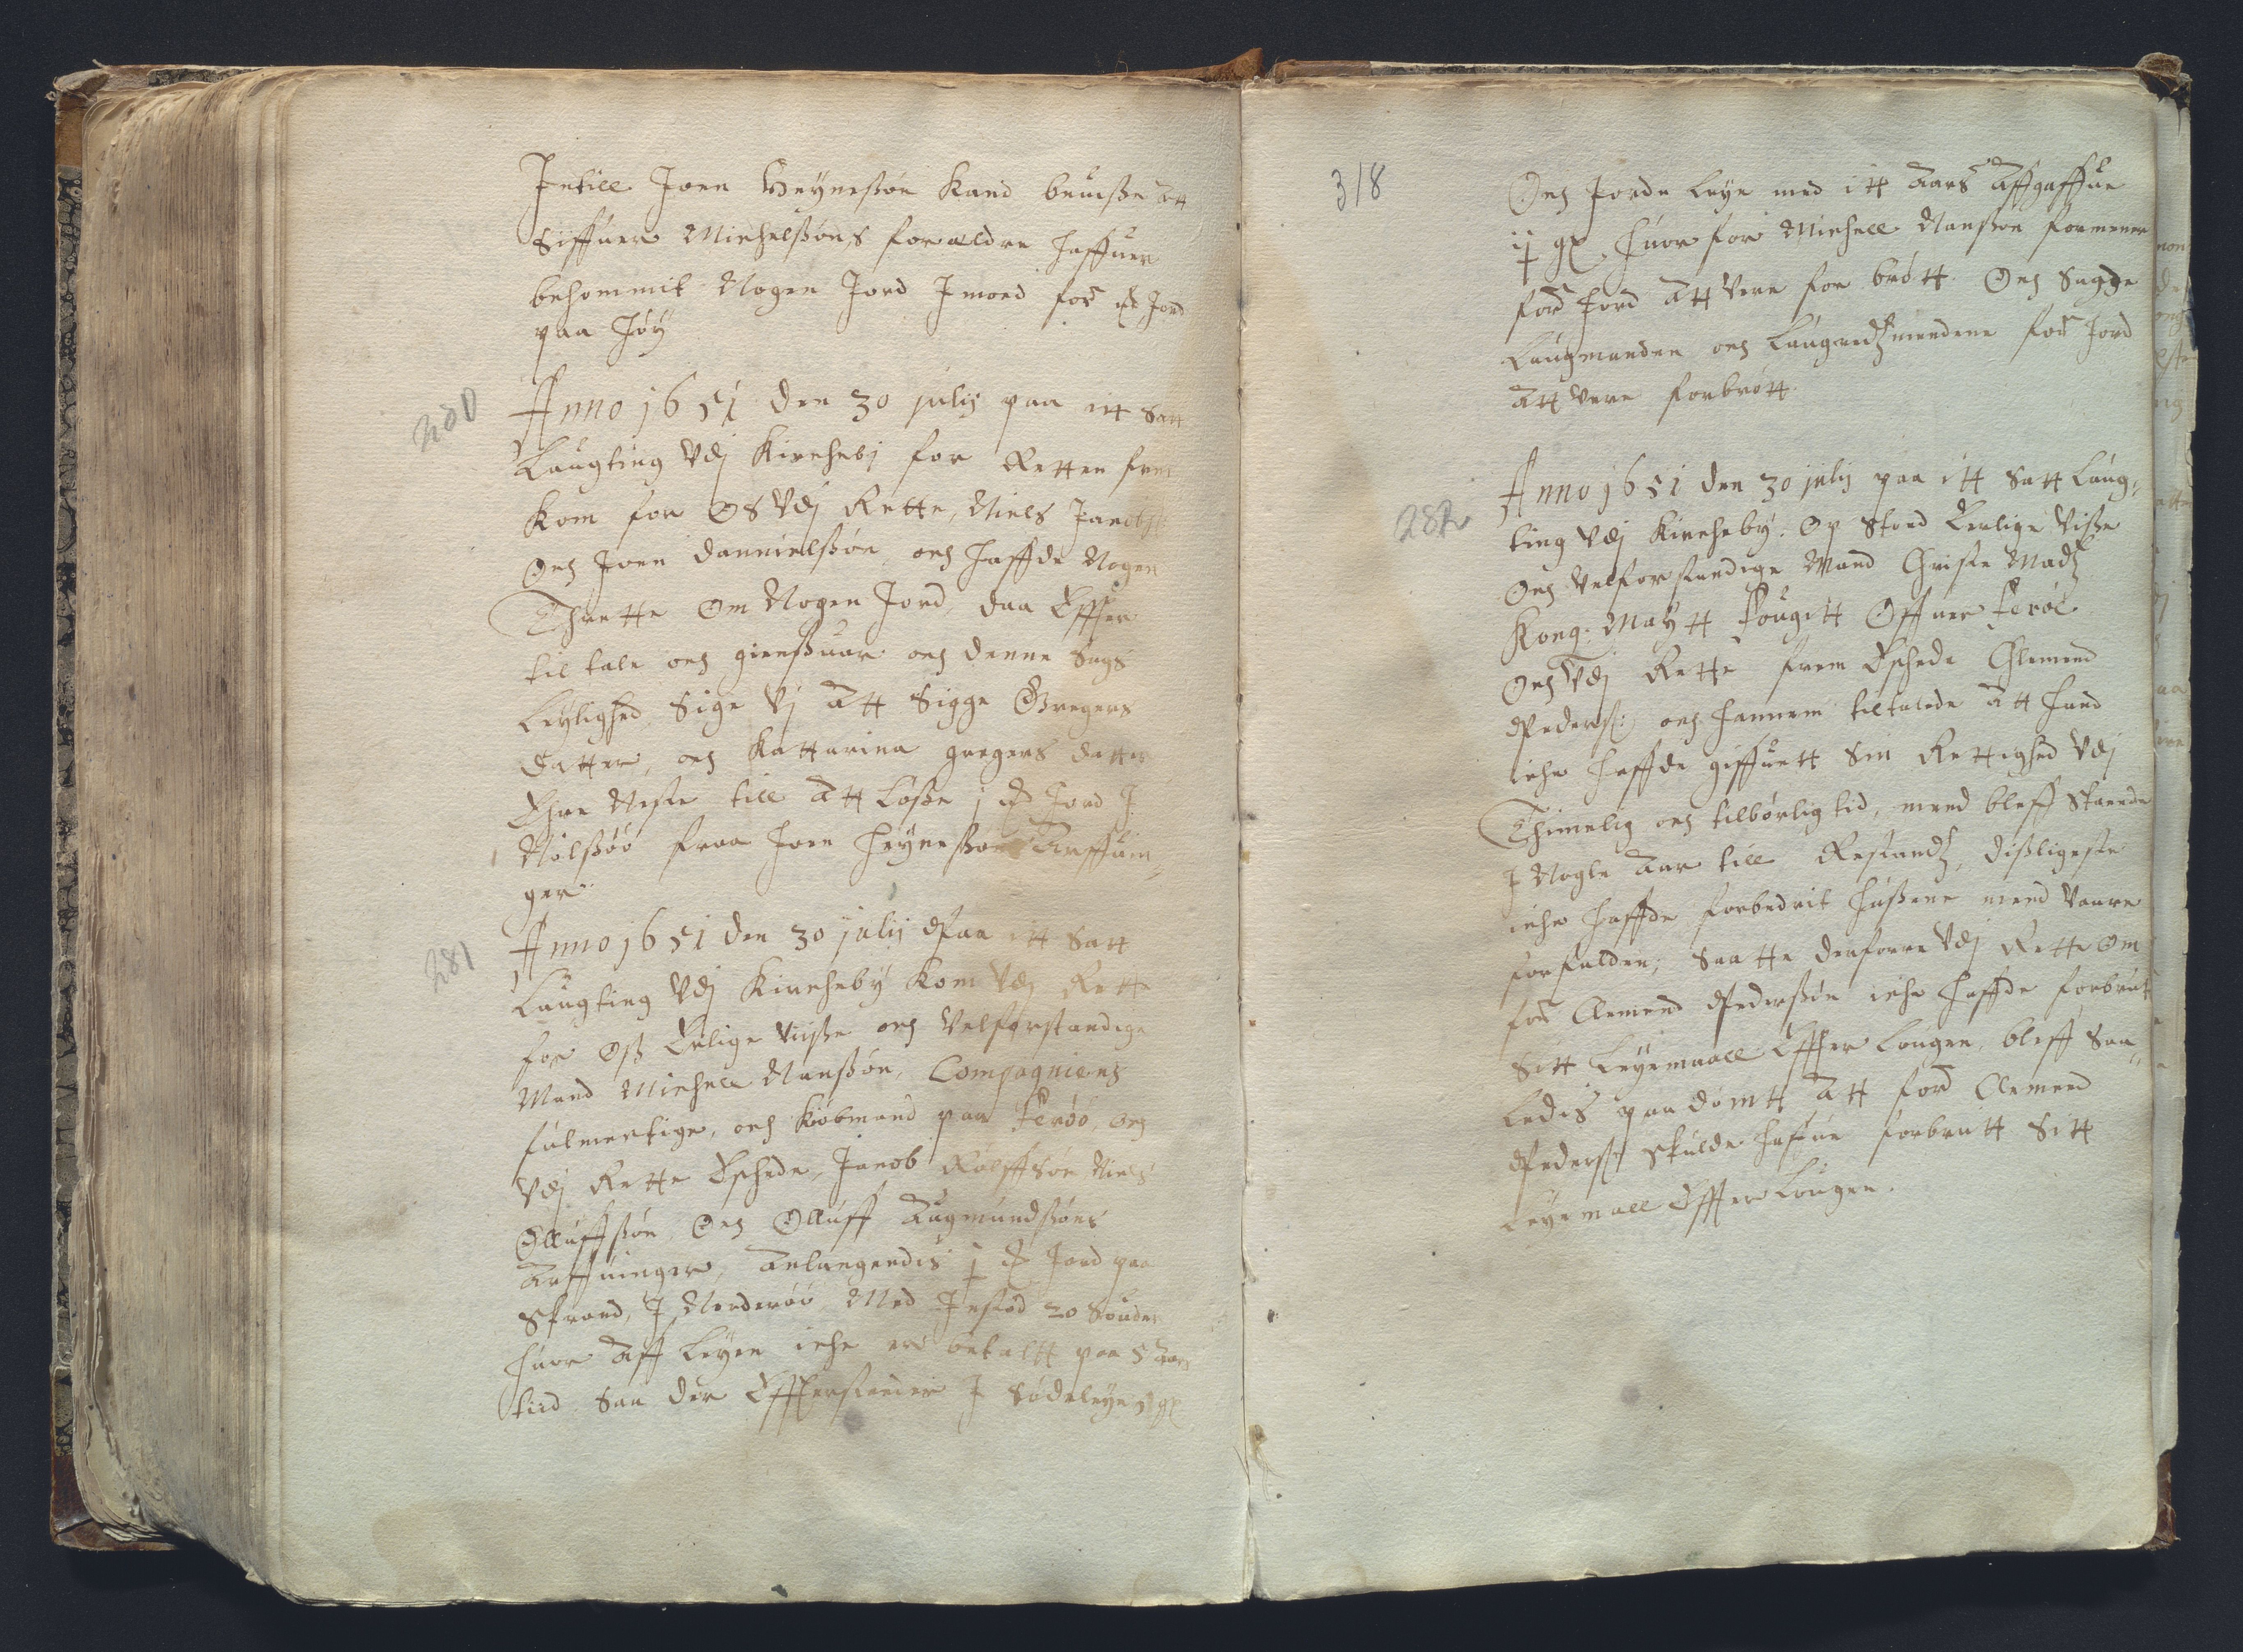 Intill Joen Heÿneßøn Kand beuiße att
Siffuer Michelßøns forældre haffuer
bekommit Nogen Jord Jmoed for
paa Høÿ
280
Anno 1651 den 30 julij paa itt Satt
Laugting Vdj Kirchebj for Retten frem
Kom for OS Vdj Rette, Niels Jacobß
Och Joen Dannielßøn, och haffde Nogen
Thrette Om Nogen Jord, daa Effter
til tale och gienßuar och denne Sags
Leylighed Sige Vj Att Sigge Gregers
Datter, och Kattarina gregers datter
Ehre Neste till Att Løße j Jord J
Nolßøø fraa Joen Heÿneßøns Arffuin„
ger
281
Anno 1651 den 30 julij Paa itt Satt
Laugting Vdj Kircheby Kom Vdj Rette
for Oß Erlige Viiße och Velforstandige
Mand Michell Hanßøn, Compagniens
fulmectige, och Kiøbmand paa Ferøø, och
Vdj Rette Eschede, Jacob Rolffsøn Niels
Olluffßøn Och Olluff Augmundßøns
Arffuinger, Anlangendis j Jord paa
Strand, J Norderøø Med Jnstød 20 Souder
huor Aff Leÿen iche er betaltt paa 5 Aars
tiid Saa der Effterstander J Kødeleÿe
318
Och Jorde leÿe med itt Aars Affgaffue
ij gℓ, huor for Michell Hanßøn formener
ford Jord Att Vere for brøtt. Och Sagde
Laugmanden och Laugrettzmendene ford Jord
Att Vere forbrøtt
282
Anno 1651 den 30 julij paa itt Satt Laug„
ting Vdj Kircheby. Op Stoed Erlige Viße
Och Velforstandige Mand Christe Madtz
Kong: Maÿtt Fougitt Offuer Ferøe
Och Vdj Rette frem Eschede Clemend
Pederß: och hannem tiltalede Att hand
iche haffde giffuett Sin Rettighed Vdj
Thimelig och tilbørlig tid, mend bleff Staende
J Nogle Aar till Restandtz, dißligeste
iche haffde forbedrit Hußene mend Vaare
forfalden, Saatte derforre Vdj Rette Om
ford Clemend Pederßøn iche haffde forbrut
Sitt Leÿemaall Effter Lougen, bleff Saa„
ledis paa dømtt Att ford Clemend
Pederß: Skulde hafue forbrutt Sitt
Leÿemall Effter Lougen.